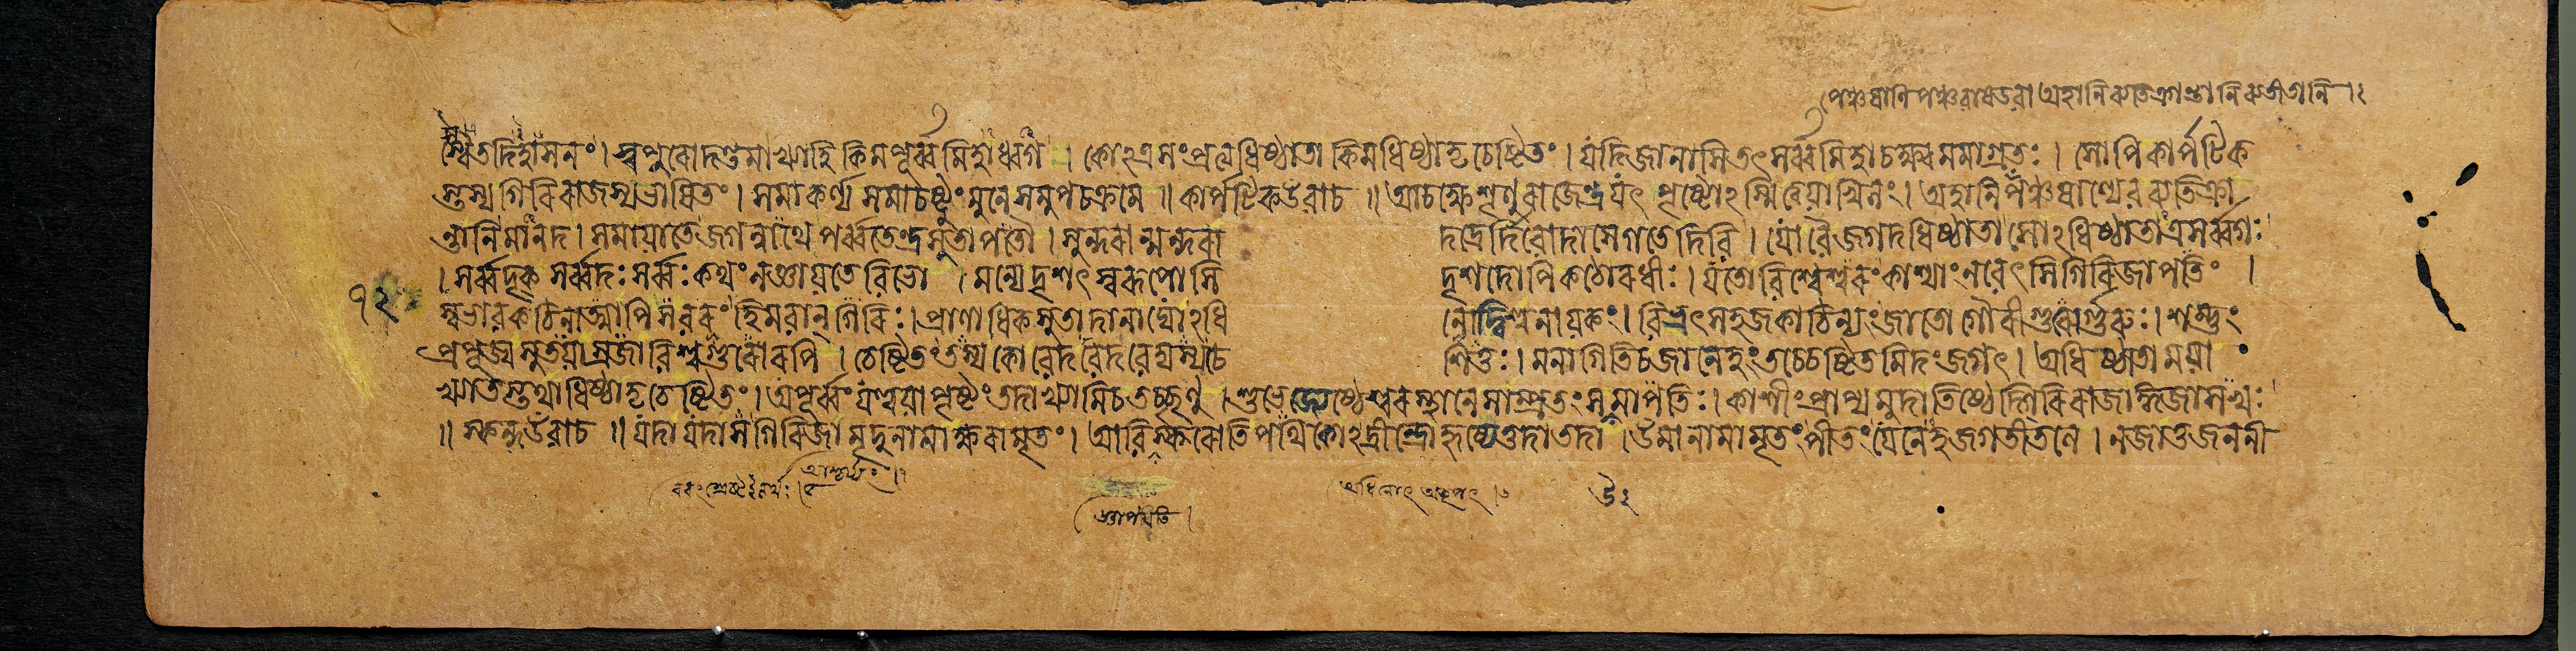 পঞ্চষাণি পঞ্চ বা ষড্বা অহানি ব্যতিক্রান্তানি ব্যতীতানি ।২
শ্বৈতদিহাসনং। স্বপুরোদন্তমাখ্যাহি কিমপূর্ব্বমিহাধ্বগ । কোঽত্র সংপ্রত্যধিষ্ঠাতা কিমধিষ্ঠাতৃচেষ্টিতং। যদি জানাসি তৎ সর্ব্বমিহাচক্ষ্ব মমাগ্রতঃ। সোপি কার্পটিক
স্তস্য গিরিরাজস্য ভাষিতং। সমাকর্ণ্য সমাচষ্টুং মুনে সমুপচক্রমে ॥ কার্পটিক উবাচ ॥ আচক্ষে শৃণু রাজেন্দ্র যৎ পৃষ্টোঽস্মি ত্বয়াখিলং। অহানি পঞ্চষাণ্যেব ব্যতিক্রা
ন্তানি মানদ। সমায়াতে জগন্নাথে পর্ব্বতেন্দ্রসুতাপতৌ। সুন্দরান্মন্দরা দদ্রের্দিবোদাসে গতে দিবি। যো বৈ জগদধিষ্ঠাতা সোঽধিষ্ঠাতাত্র সর্ব্বগঃ
। সর্ব্বদৃক সর্ব্বদঃ সর্ব্বঃ কথং ন জ্ঞায়তে বিভো । মন্যে দৃশৎস্বরূপোসি দৃশদোপি কঠোরধীঃ। যতো বিশ্বেশ্বরং কাশ্যাং ন বেৎসি গিরিজাপতিং ।
১২
স্বভাবকঠিনাত্মাপি স বরং হিমবান্ গিরিঃ। প্রাণাধিকসুতাদানাদ্যোঽধি নোদ্বিশ্বনায়কং। বিভ্রৎ সহজকাঠিন্যং জাতো গৌরীগুরুর্গুরুঃ। শম্ভুং
প্রপূজ্য সুতয়া স্রজা বিশ্বগুরোরপি । চেষ্টিতং তস্য কো বেদ বেদবেদ্যস্য চে শিতুঃ। মনাগিতি চ জানেহং তচ্চেষ্টিতমিদং জগৎ। অধিষ্ঠাতা ময়া
খ্যাতস্তথাধিষ্ঠাতৃচেষ্টিতং। অপূর্ব্বং যত্ত্বয়া পৃষ্টং তদাখ্যামি চ তচ্ছৃণু । শুভে জ্যেষ্ঠেশ্বরস্থানে সাম্প্রতং স উমাপতিঃ। কাশীং প্রাপ্য মুদা তিষ্ঠেদ্গিরিরাজাঙ্গজাসখঃ
॥ স্কন্দ উবাচ ॥ যদা যদা স গিরিজা মৃদুনামাক্ষরামৃতং। আবিষ্করোতি পথিকোঽদ্রীন্দ্রো হৃষ্যেত্তদা তদা । উমানামামৃতং পীতং যেনেহ জগতীতলে । ন জাতু জননী